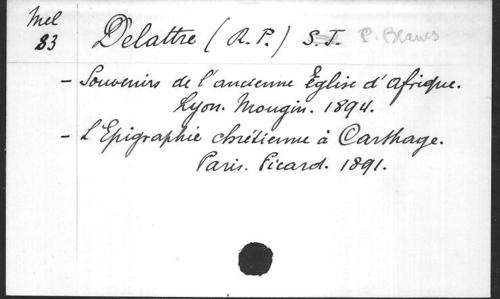 Mel
83
Delattre (R.P.) S.J. P. Blancs
- Souvenirs de l'ancienne Église d'Afrique.
Lyon. Mougin. 1894.
- L'Epigraphie chrétienne à Carthage.
Paris. Picard. 1891.